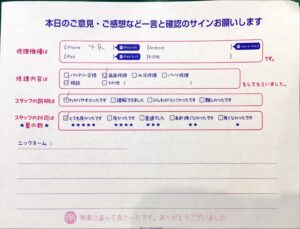 本日のご意見・ご感想など一言と確認のサインお願いします
修理機種は
iPhone XR
Android
iPad
その他
です。
修理内容は
バッテリー交換 画面修理 水没修理 パーツ修理
相談 その他
をしてもらいました。
スタッフの説明は
わかりやすかったです 理解できました 少しわかりにくかったです 難しかったです
スタッフの対応は
とても良かったです 良かったです 普通でした あまり良くなかったです 良くなかったです
★星の数★
★★★★★ ★★★★ ★★★ ★★ ★
ニックネーム：
無事に直って良かったです。ありがとうございました